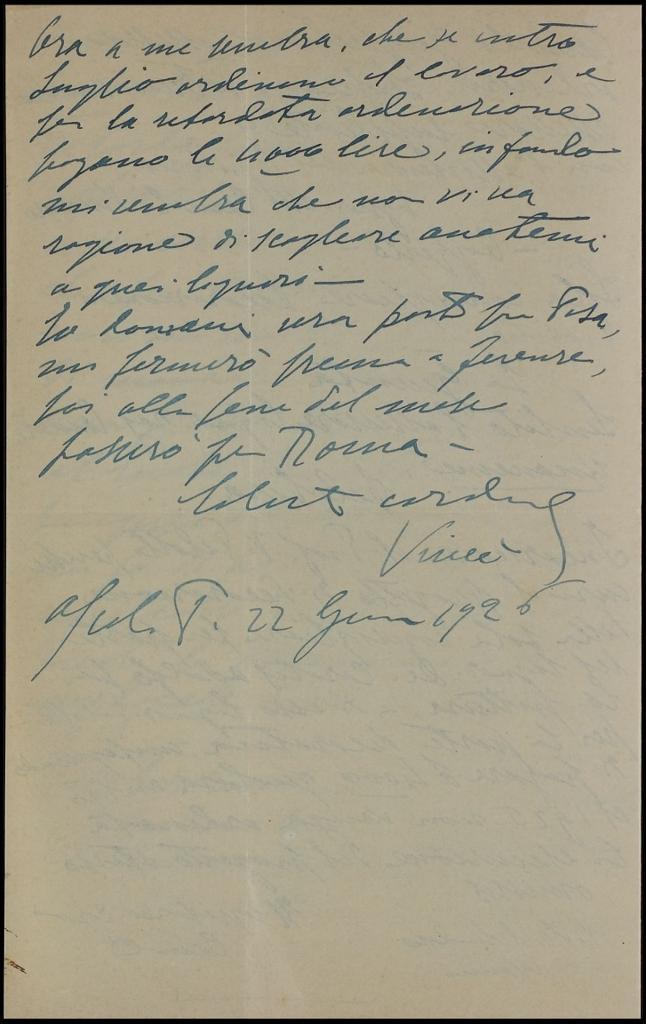 Ora a me sembra, che se entro
Luglio ordinano il lavoro, e
per la ritardata ordinazione
pagano le 4000 lire, in fondo
mi sembra che non vi sia
ragione di scagliare anatemi
a quei signori —
Io domani sera parto per Pisa,
mi fermerò prima a Firenze,
poi alla fine del mese
passerò per Roma —
Saluti cordiali
Ascoli P. 22 Giu 1926